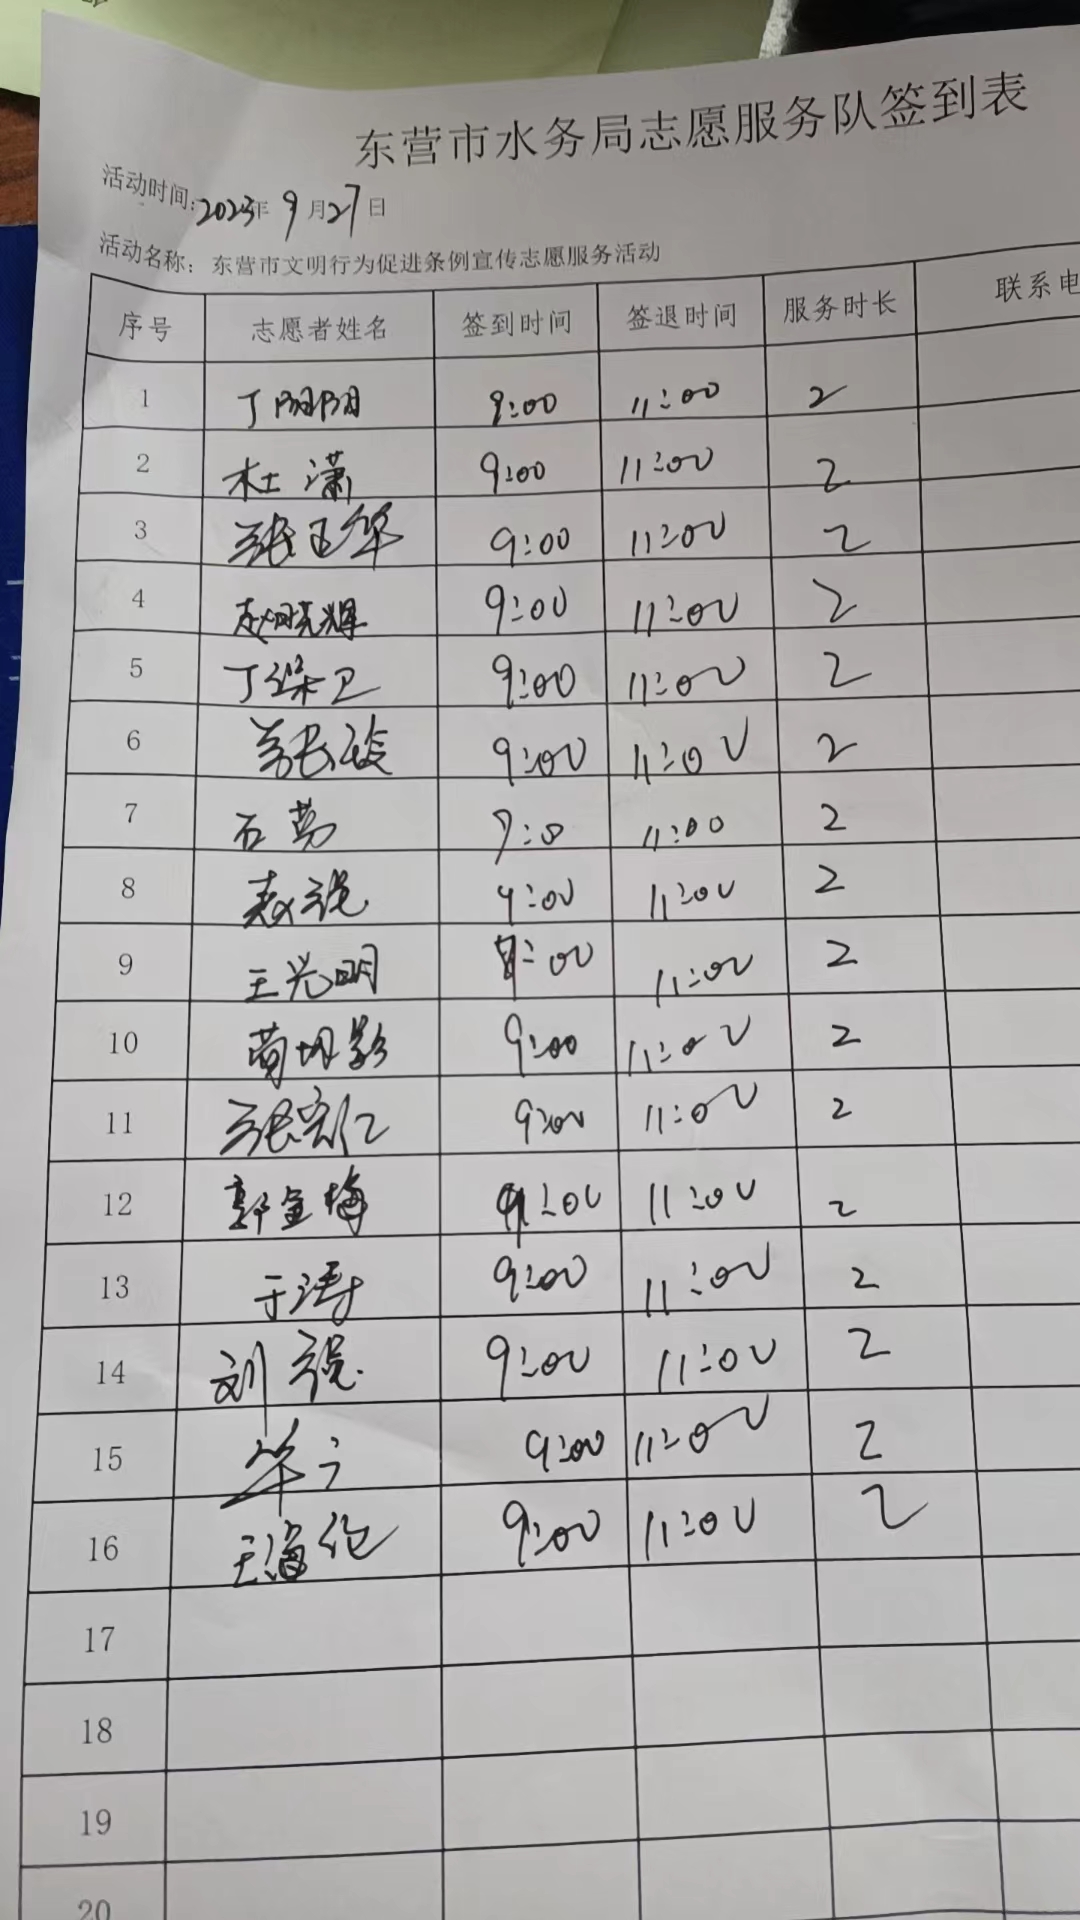 东营市水务局志愿服务队签到表
活动时间:2023年9月27日
活动名称：东营市文明行为促进条例宣传志愿服务活动
序号 志愿者姓名 签到时间 签退时间 服务时长 联系电
1 丁阳阳 9:00 11:00 2
2 杜潇 9:00 11:00 2
3 张玉华 9:00 11:00 2
4 赵晓辉 9:00 11:00 2
5 丁继卫 9:00 11:00 2
6 张玲 9:00 11:00 2
7 石 11:00 2
8 赵强 9:00 11:00 2
9 王光明 9:00 11:00 2
10 9:00 11:00 2
11 张宪仁 9:00 11:00 2
12 郭金梅 9:00 11:00 2
13 于涛 9:00 11:00 2
14 刘强 9:00 11:00 2
15 9:00 11:00 2
16 王海伦 9:00 11:00 2
17
18
19
20